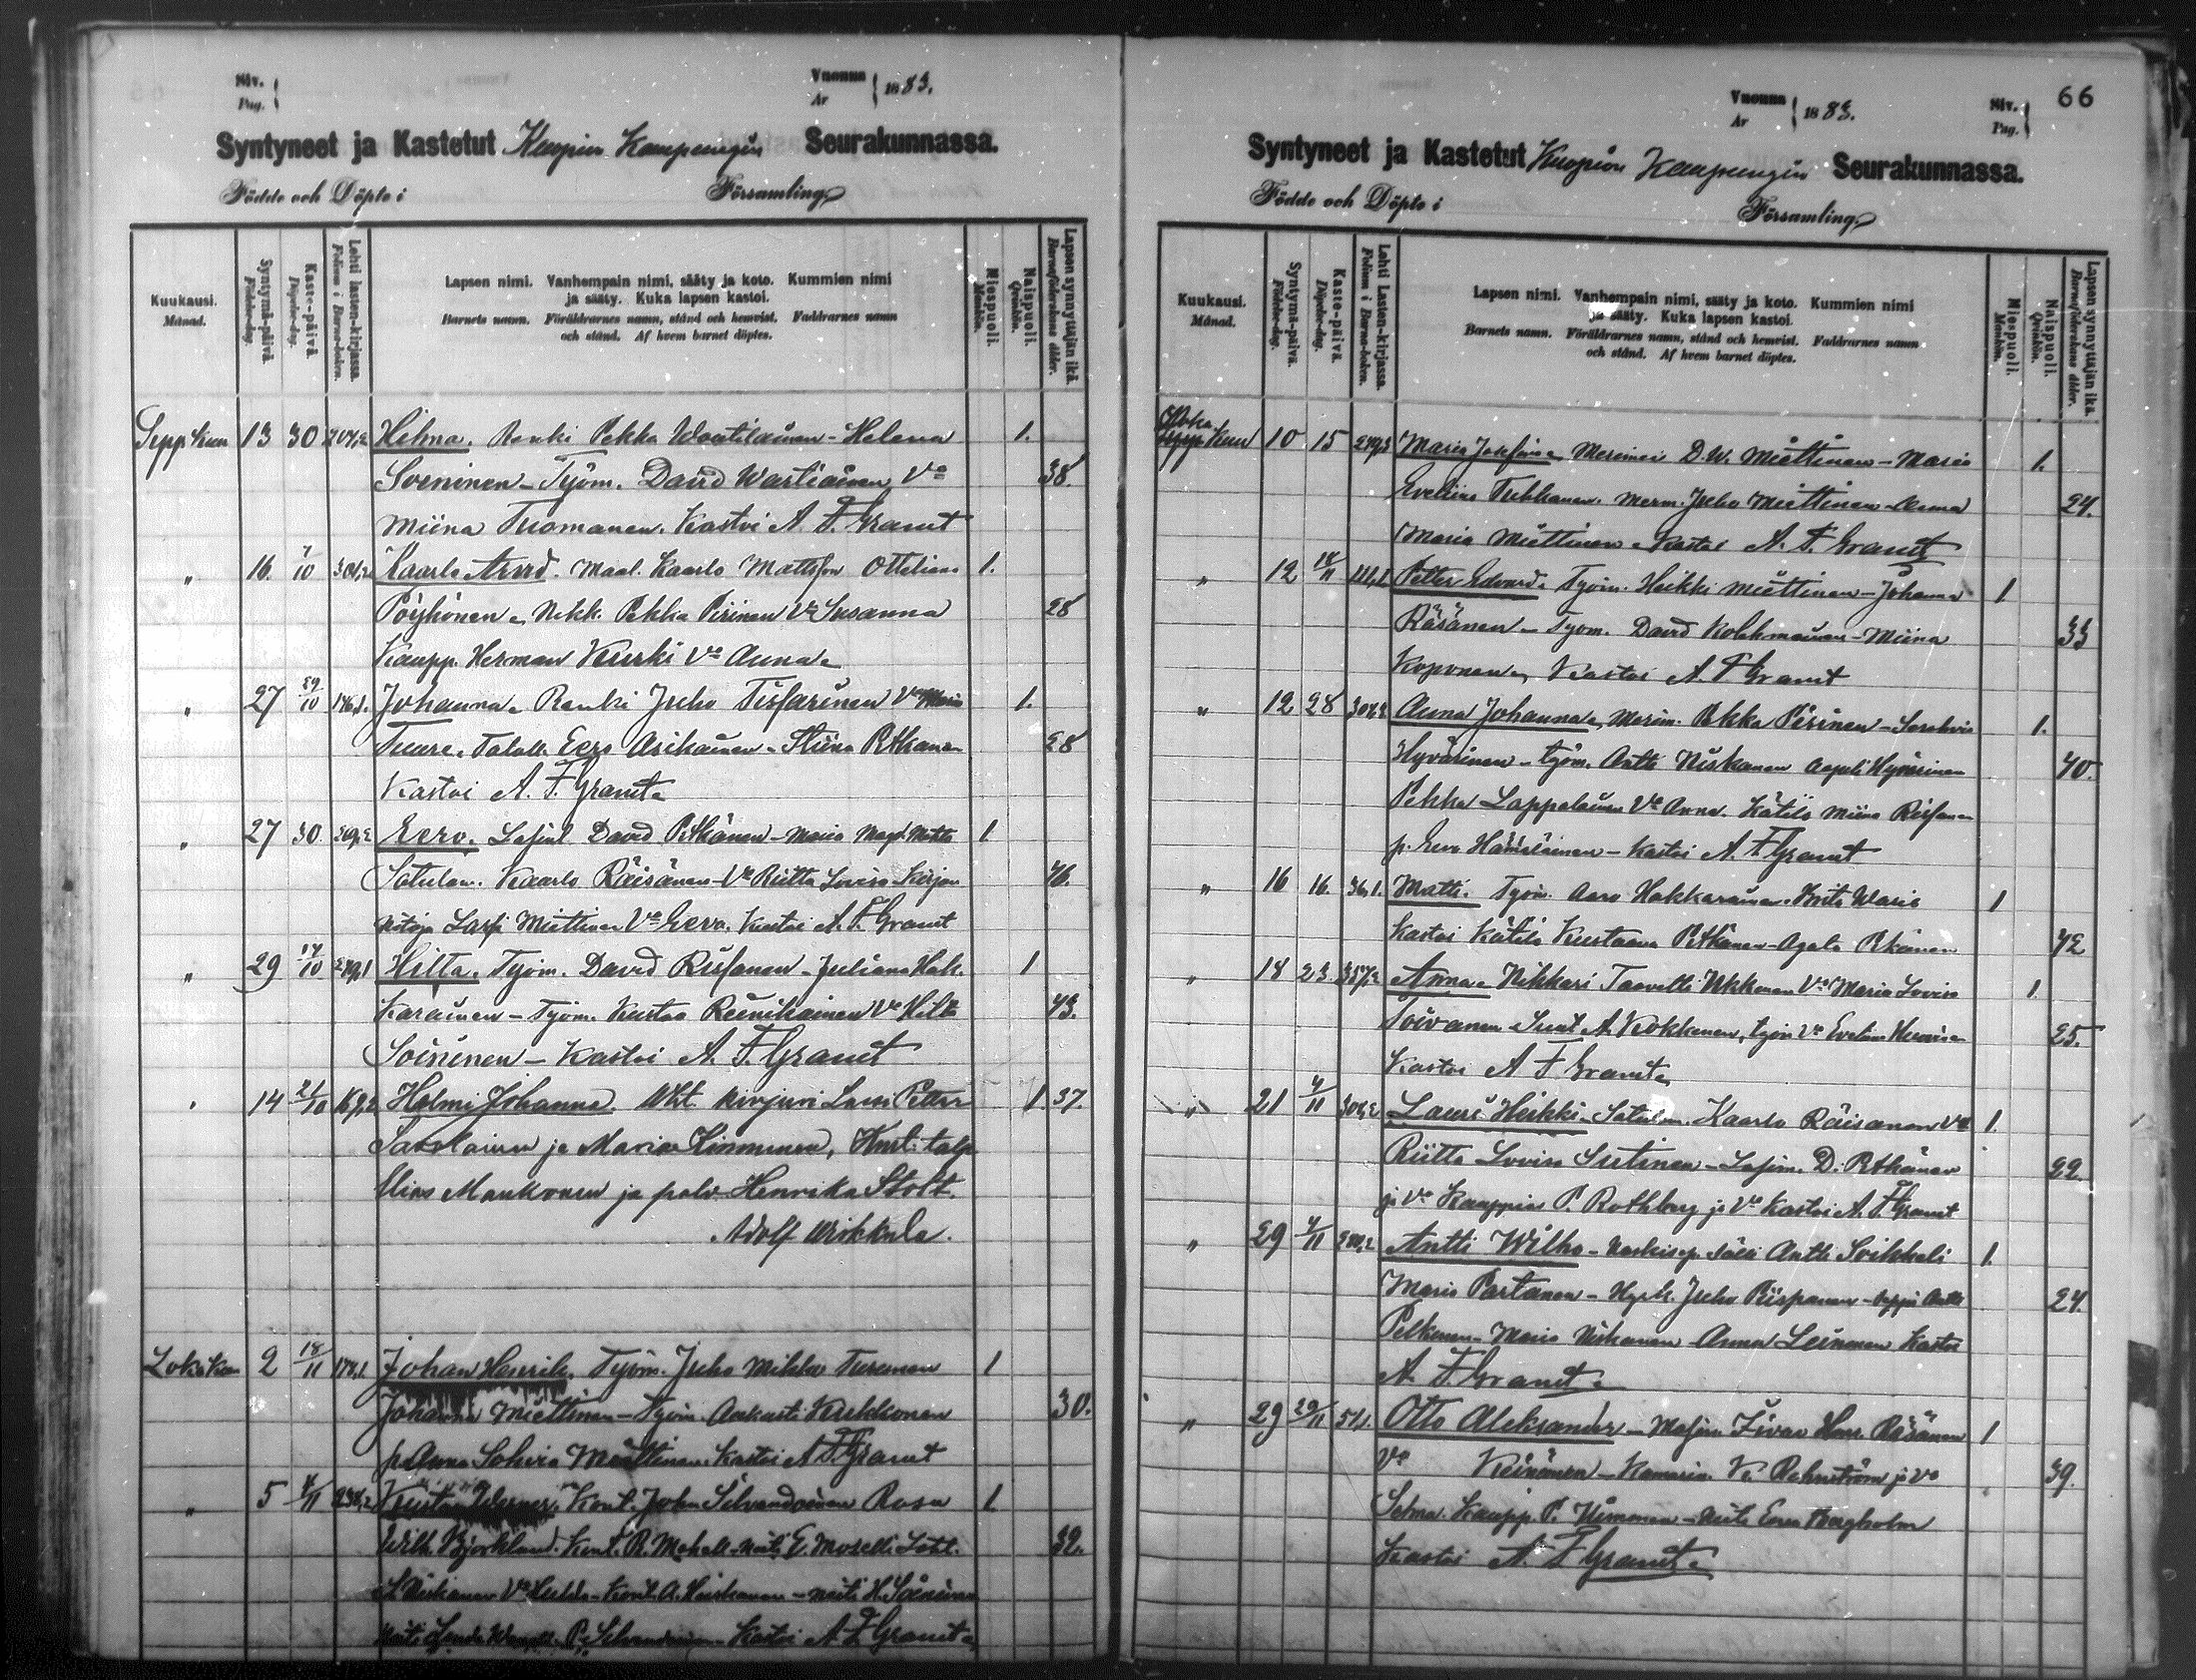 Niv.
Pag.
Vuonna
År
1883.
Syntyneet ja Kastetut Kuopion Kaupungin Seurakunnassa.
Födde och Döpte i Församling
Kuukausi. Månad.
Syntymä-päivä. Födelse-dag.
Kaste-päivä. Döpelse-dag.
Lehti lasten-kirjassa. Folium i Barna-boken.
Lapsen nimi. Vanhempain nimi, sääty ja koto. Kummien nimi
ja sääty. Kuka lapsen kastoi.
Barnets namn. Föräldrarnes namn, stånd och hemvist. Faddrarnes namn
och stånd. Af hvem barnet döptes.
Miespuoli. Mankön.
Naispuoli. Qvinkön.
Lapsen synnyttäjän ikä. Barnaföderskans ålder.
Syyskuu 13 30 Hilma. Renki Pekka Woutilainen - Helena 1.
Soininen - Työm. David Wartiainen Vo 38.
Miina Tuomanen. Kastoi A. F. Granit
" 16. 7/10 Kaarlo Arvid. Maal. Kaarlo Mattsson Ottiliana 1.
Pöyhönen, Nikk. Pekka Pirinen Vo Susanna 28
Kaupp. Herman Kurki Vo Anna
" 27 29/10 Johanna. Renki Juho Tissarinen Vo Maria 1.
Tuure. Taloll. Eero Asikainen - Stiina Pitkänen 28
Kastoi A. F. Granit
" 27 30. Eero. David Pitkänen - Maria Magd. 1.
Satulam. Kaarlo Räisänen - Vo Riitta Lovisa Kirjan 46.
sitoja Lassi Miettinen Vo Eeva. Kastoi A. F. Granit
" 29 14/10 Hilta. Työm. David Rissanen - Juliana Hak- 1
karainen - Työm. Kustaa Reinikainen Vo Hilta 43.
Soininen - Kastoi A. F. Granit
" 14 21/10 Helmi Johanna. Wht. kirjuri Lars Petter 1. 37.
Savolainen ja Maria Kinnunen,
Elias Maukonen ja palv. Henrika Stolt.
Adolf Wirkkula.
Lokakuu 2 18/11 178,1. Johan Henrik. Työm. Juho Mikko Turunen 1
Johanna Miettinen - Työm. Aukusti Kukkonen 30.
p. Anna Sohvia Miettinen. Kastoi A F Granit
" 5 4/11 Kustaa Werner. Kont. John Silvendoinen Rosa 1.
Wilh. Björklund. Kont. R. Mehell - neiti E. Moselli 32.
Niskanen Vo Hulda - Kont. A. Heiskanen - neiti H. Soininen
neiti Linda P. Silvendoinen - Kastoi A F Granit
66
Niv.
Pag.
Vuonna
År
1883.
Syntyneet ja Kastetut Kuopion Kaupungin Seurakunnassa.
Födde och Döpte i Församling
Kuukausi. Månad.
Syntymä-päivä. Födelse-dag.
Kaste-päivä. Döpelse-dag.
Lehti Lasten-kirjassa. Folium i Barna-boken.
Lapsen nimi. Vanhempain nimi, sääty ja koto. Kummien nimi
ja sääty. Kuka lapsen kastoi.
Barnets namn. Föräldrarnes namn, stånd och hemvist. Faddrarnes namn
och stånd. Af hvem barnet döptes.
Miespuoli. Mankön.
Naispuoli. Qvinkön.
Lapsen synnyttäjän ikä. Barnaföderskans ålder.
Loka kuu 10 15 Maria Josefina. Merimies D. W. Miettinen - Maria 1.
Evelina Tirkkonen. Merim. Juho Miettinen - Anna 24.
Maria Miettinen. Kastoi A. F. Granit
" 12 18/11 111,1. Petter Edvard. Työm. Heikki Miettinen - Johanna 1.
Räsänen - Työm. David Kolehmainen - Miina 33
Koponen. Kastoi A. F Granit
" 12 28 Anna Johanna. Merim. Pekka Pirinen - Serahvia 1.
Hyvärinen - työm. Antti Niskanen Aapeli Hyvärinen 40.
Pekka Lappalainen Vo Anna. Kätilö Miina Rissanen
p. Eeva Hämäläinen - Kastoi A. F Granit
" 16 16. 36,1. Matti. Työm. Aaro Hakkarainen. Brita Waris 1
Kastoi Kätilö Kustaava Pitkänen - Agata 42
" 18 23. 357,2 Anna. Nikkari Taavetti Ukkonen Vo Maria Lovisa 1.
Toivanen A. Kokkonen, työm Vo Evelina 25.
Kastoi A F Granit
" 21 4/11 Lauri Heikki. Satulam. Kaarlo Räisänen Vo 1.
Riitta Lovisa Sutinen - D. Pitkänen 22.
ja Vo Kauppias P. Rothberg ja Vo Kastoi A. F. Granit
" 29 4/11 Antti Wilho - Antti Soikkeli 1.
Maria Partanen - Juho Piispanen - seppä Antti 24.
Pelkonen - Maria Niskanen - Anna Leinonen Kastoi
A. F. Granit
" 29 29/11 51,1. Otto Aleksander - Iivar Räsänen 1
Vo Keinänen - Rehnström ja Vo 39.
Selma. Kaupp. P. Nissinen - Neiti Bergholm
Kastoi A. F Granit